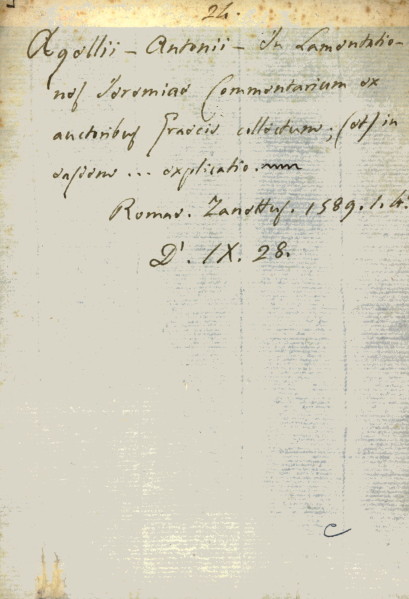 24.
Agellii - Antonii - In Lamentatio-
nes Ieremiae Commentarium ex
auctoribus Graecis collectum; (et) in
easdem ... explicatio.
Romae. Zanettus. 1589. 1. 4.
D'. IX. 28.
c